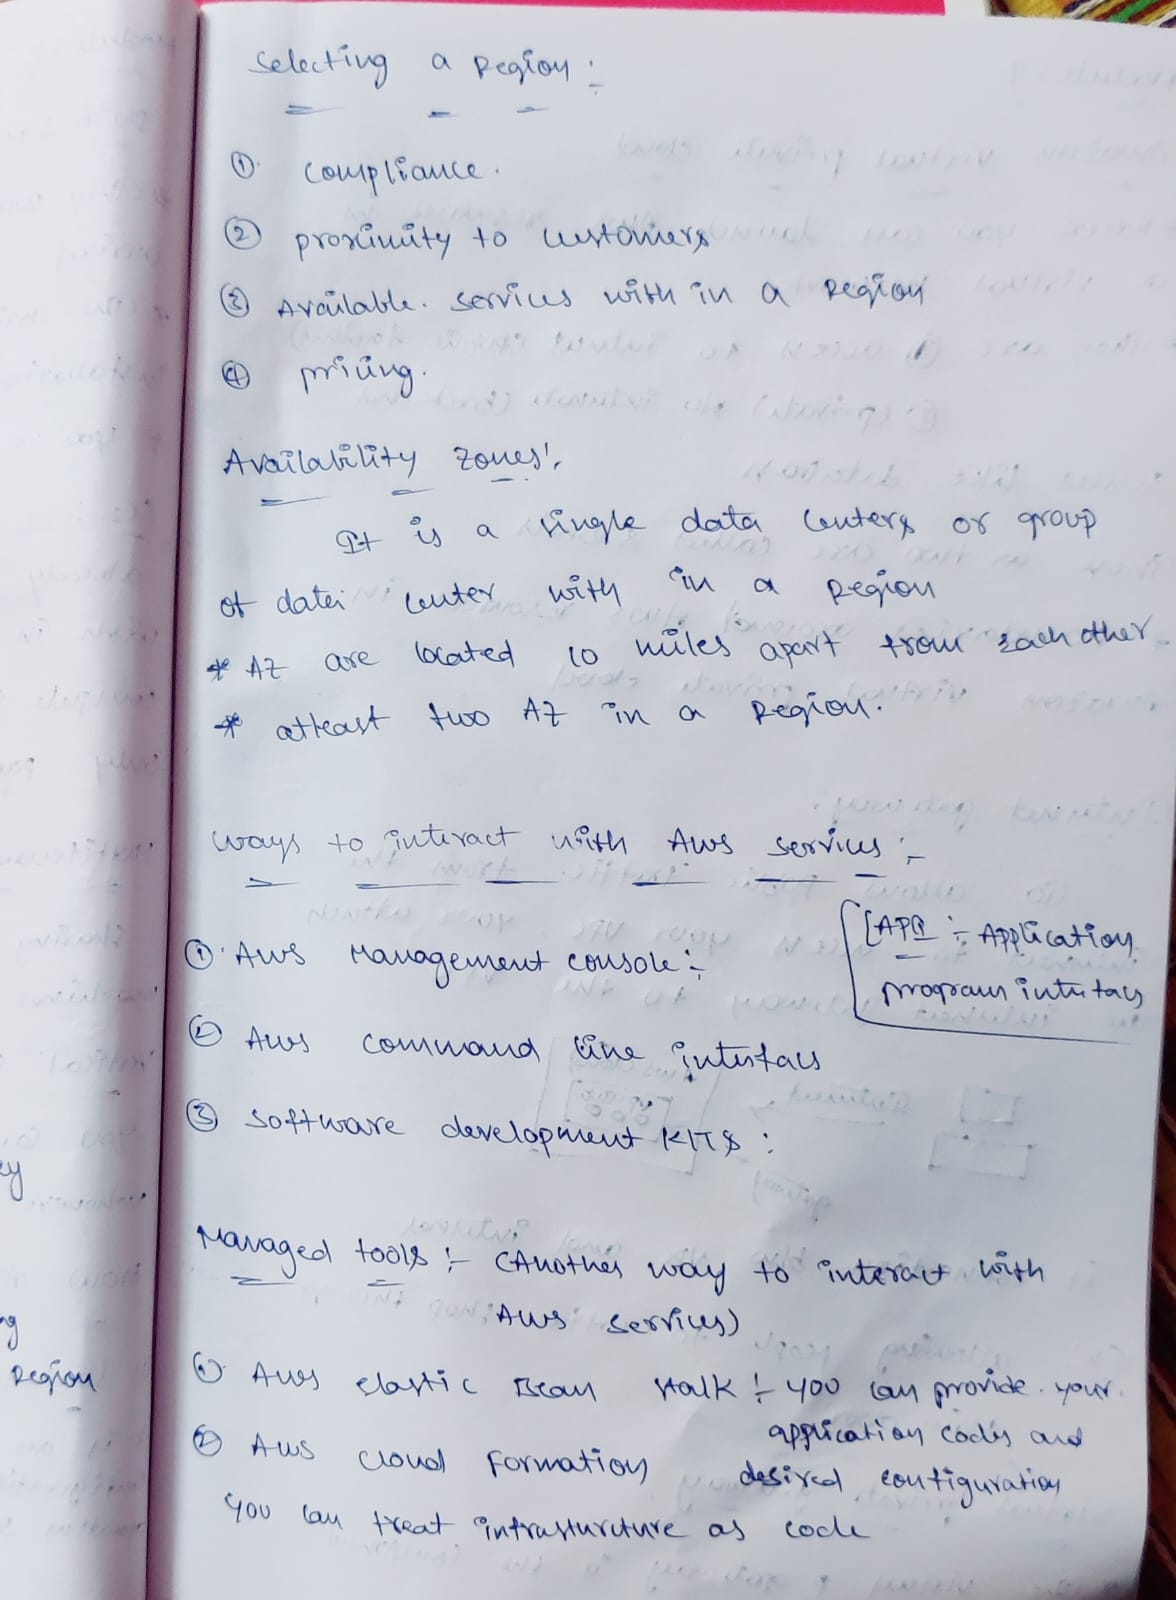 Selecting a Region :-
① Compliance.
② proximity to customers
③ Available. Services with in a Region
④ pricing.
Availability Zones:
It is a single data centers or group
of data center with in a Region
* AZ are located 10 miles apart from each other
* atleast two AZ in a Region.
ways to interact with AWS services :-
[API :- Application
program interfacs
① AWS Management console :-
② AWS command line interfacs
③ Software development KITS :
Managed tools :- (Another way to interact with
AWS services)
① AWS elastic Bean stalk :- you can provide your
application codes and
desired configuration
② AWS cloud Formation
you can treat infrasturcture as code
ey
ng
Region